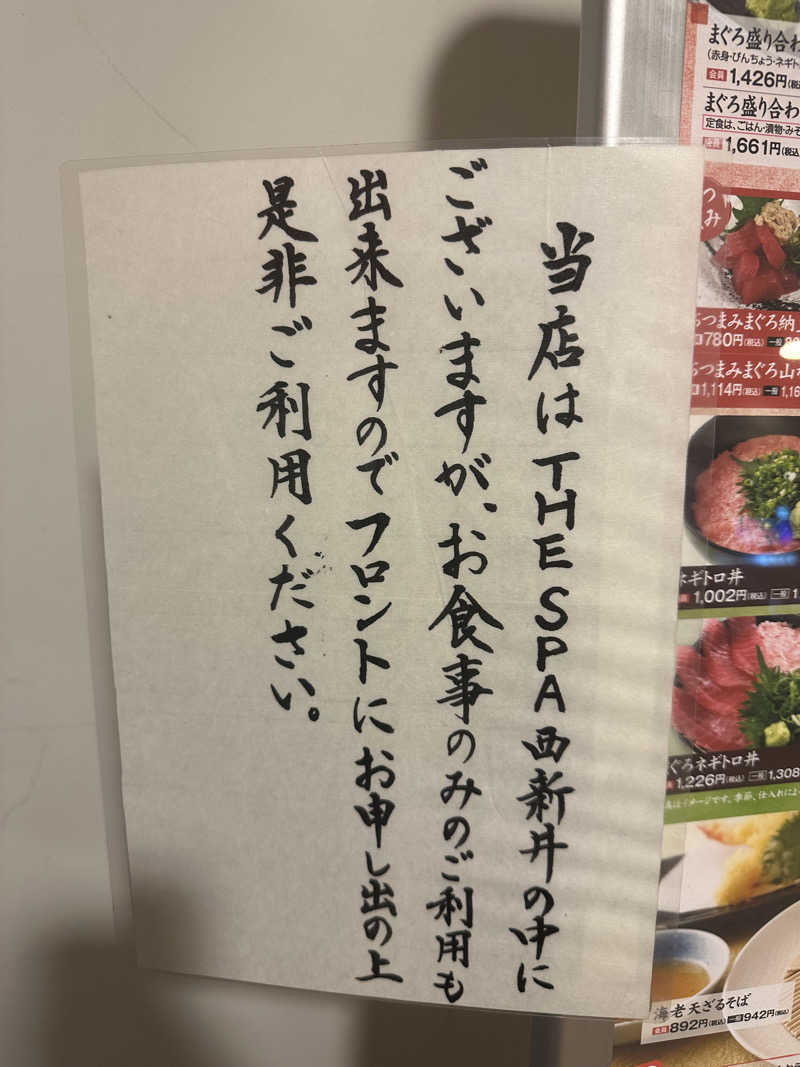 当店はTHE SPA西新井の中に
ございますが、お食事のみのご利用も
出来ますのでフロントにお申し出の上
是非ご利用ください。
まぐろ盛り合わ
(赤身・びんちょう・ネギト
会員 1,426円(税込
まぐろ盛り合わ
定食は、ごはん・漬物・みそ
会員 1,661円(税込)
つ
み
つまみまぐろ納
780円(税込) 一般
つまみまぐろ山
1,114円(税込) 一般 1,16
ネギトロ丼
1,002円(税込) 一般 1
ぐろネギトロ丼
1,226円(税込) 一般 1,308
イメージです。季節、仕入れによ
海老天ざるそば
会員 892円(税込) 一般 942円(税込)